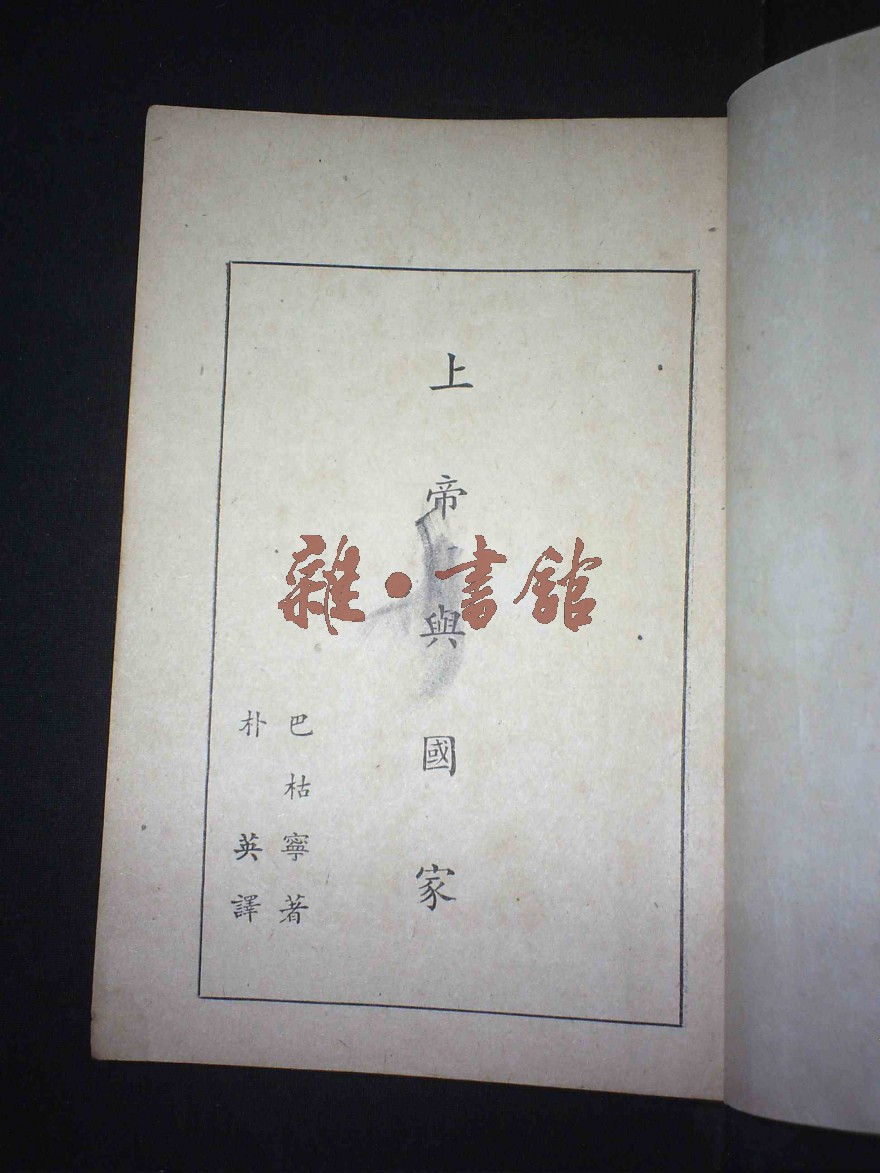 上帝與國家
巴枯寧著
朴英譯
雜·書館